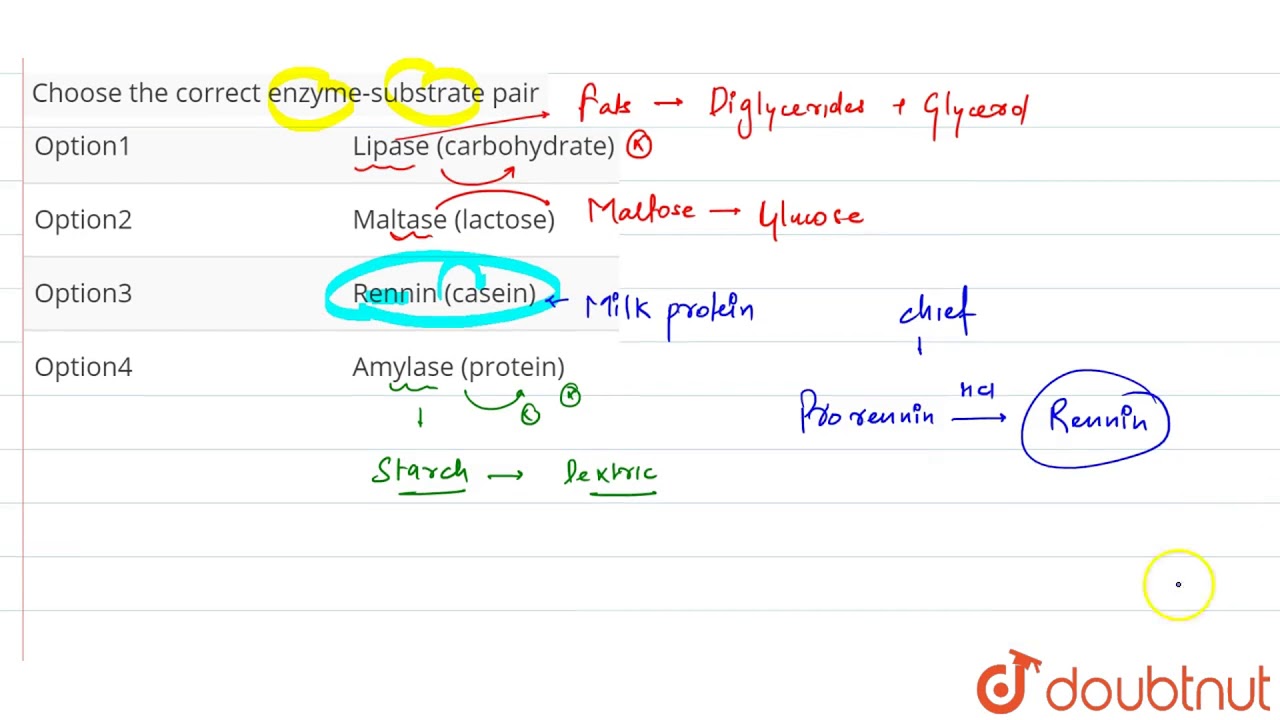 Choose the correct enzyme-substrate pair
Fats → Diglycerides + Glycerol
Option1 Lipase (carbohydrate)
Option2 Maltase (lactose) Maltose → Glucose
Option3 Rennin (casein) ← Milk protein
chief
Option4 Amylase (protein)
Prorennin HCl → Rennin
Starch → Dextric
doubtnut